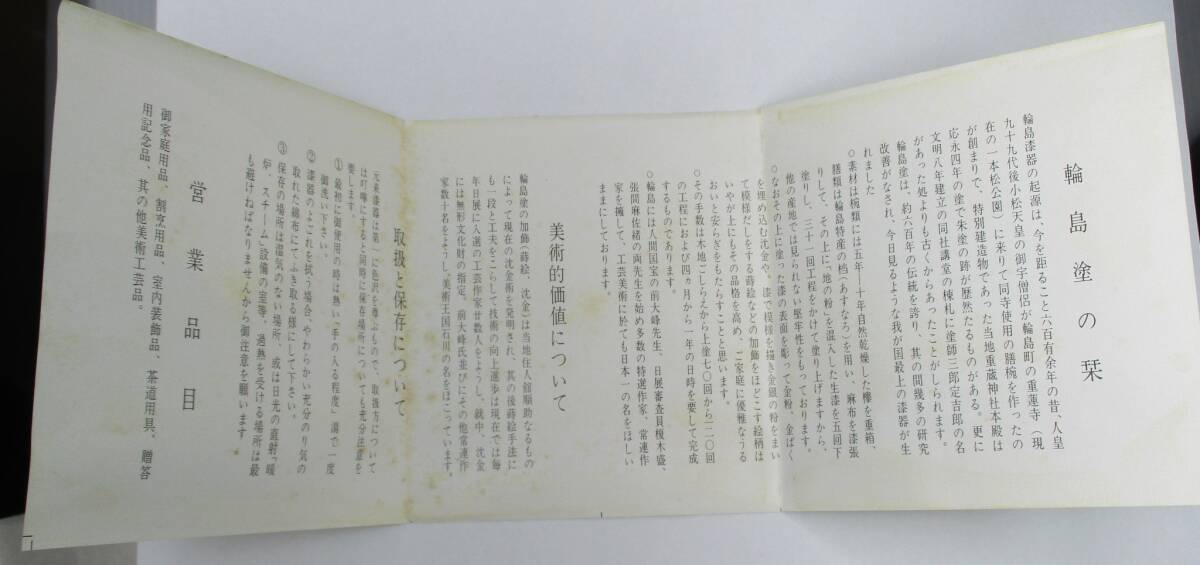 輪島塗の栞
輪島漆器の起源は、今を距ること六百有余年の昔、人皇
九十九代後小松天皇の御宇僧侶が輪島町の重蓮寺(現
在の一本松公園)に来りて同寺使用の膳椀を作ったの
が創まりで、特別建造物であった当地重蔵神社本殿は
応永四年の塗で朱塗の跡が歴然たるものがある。更に
文明八年建立の同社講堂の棟札に塗師三郎定吉郎の名
があった処よりも古くからあったことがしられます。
輪島塗は、約六百年の伝統を誇り、其の間幾多の研究
改善がなされ、今日見るような我が国最上の漆器が生
れました
○素材は椀類には五年―十年自然乾燥した欅を重箱、
膳類は輪島特産の档(あすなろ)を用い、麻布を漆張
りして、その上に「地の粉」を混入した生漆を五回下
塗りし、三十一回工程をかけて塗り上げますから、
他の産地では見られない堅牢性をもっております。
○なおその上に塗った漆の表面を彫って金粉、金ぱく
を埋め込む沈金や、漆で模様を描き金銀の粉をまい
て模様だしをする蒔絵などの加飾をほどこす絵柄は
いやが上にもその品格を高め、ご家庭に優雅なうる
おいと安らぎをもたらすことと思います。
○その手数は木地ごしらえから上塗七〇回から一二〇回
の工程におよび四ヵ月から一年の日時を要して完成
するものであります。
○輪島には人間国宝の前大峰先生、日展審査員榎木盛、
張間麻佐緒の両先生を始め多数の特選作家、常連作
家を擁して、工芸美術に於ても日本一の名をほしい
ままにしております。
美術的価値について
輪島塗の加飾(蒔絵、沈金)は当地住人舘順助なるもの
によって現在の沈金術を発明され、其の後蒔絵手法に
も一段と工夫をこらして技術の向上進歩は現在では毎
年日展に入選の工芸作家廿数人をようし、就中、沈金
には無形文化財の指定。前大峰氏並びにその他常連作
家数十名をようし美術王国石川の名をほこっています。
取扱と保存について
元来漆器は第一に色沢を尊ぶもので、取扱方について
は叮嚀にすると同時に保存場所についても充分注意を
要します。
① 最初に御使用の時は熱い「手の入る程度」湯で一度
御洗い下さい。
② 漆器のよごれを拭う場合、やわらかい充分のり気の
取れた綿布にてふき取る様にして下さい。
③ 保存の場所は湿気のない場所、或は日光の直射「暖
炉、スチーム」設備の室等、過熱を受ける場所は最
も避けねばなりませんから御注意を願います
営業品目
御家庭用品、割烹用品、室内装飾品、茶道用具、贈答
用記念品、其の他美術工芸品。